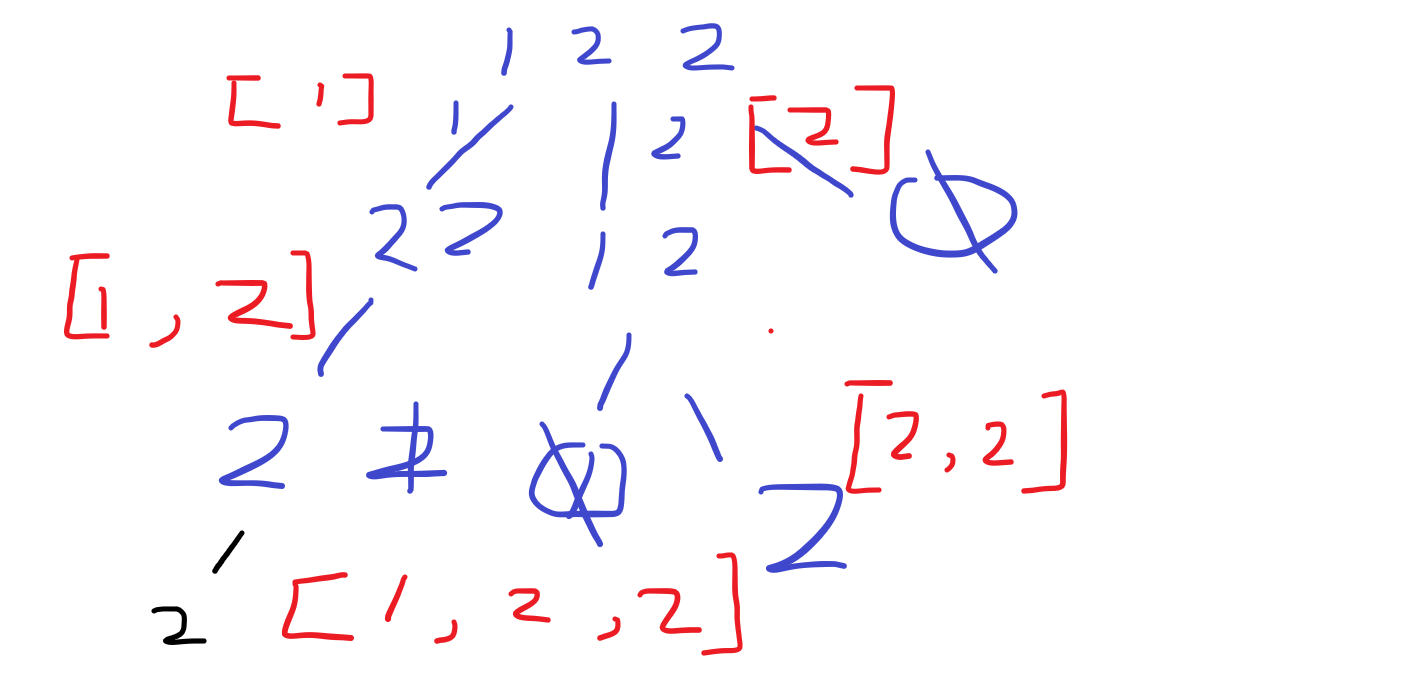 1 2 2
[ 1 ]
1 2 [ 2 ]
2 2 1 2
[ 1 , 2 ]
2 2 1 2 [ 2 , 2 ]
2 [ 1 , 2 , 2 ]